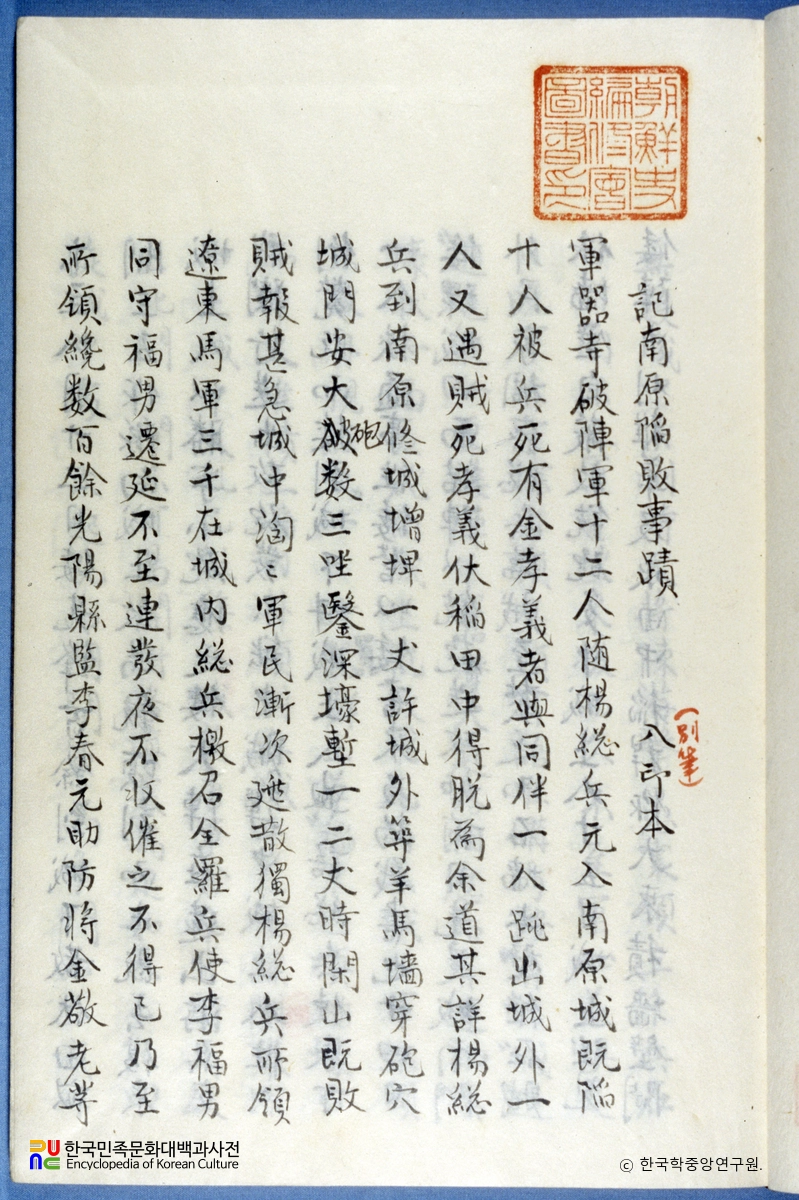 朝鮮史
編修會
圖書印
記南原陷敗事蹟
入印本
(別筆)
軍器寺破陣軍十二人随楊総兵元入南原城既陷
十人被兵死有金孝義者與同伴一人跳出城外一
人又遇賊死孝義伏稲田中得脫為余道其詳楊総
兵到南原修城增埤一丈許城外築羊馬墻穿砲穴
城門安大砲数三坐鑿深壕塹一二丈時閑山既敗
賊報甚急城中洶〻軍民漸次逃散獨楊総兵所領
遼東馬軍三千在城内総兵檄召全羅兵使李福男
同守福男遷延不至連發夜不收催之不得已乃至
所領纔数百餘光陽縣監李春元助防将金敬老等
한국민족문화대백과사전
Encyclopedia of Korean Culture
© 한국학중앙연구원.